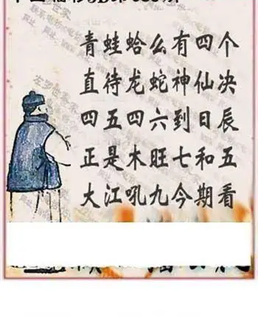 青蛙蛤么有四个
直待龙蛇神仙决
四五四六到日辰
正是木旺七和五
大江吼九今期看